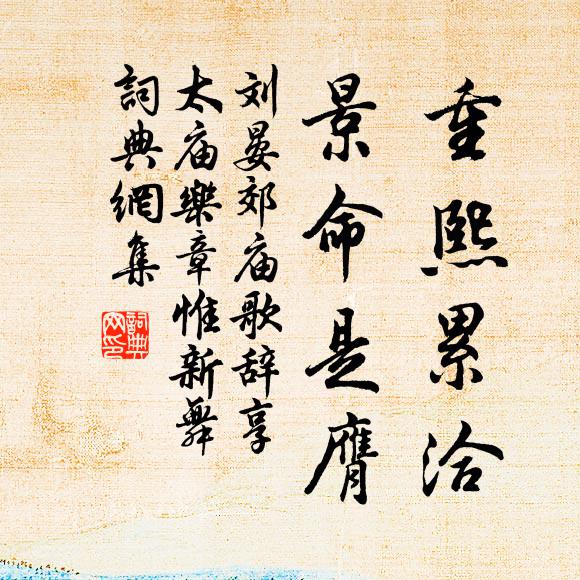 重熙累洽
景命是膺
刘晏郊庙歌辞享
太庙樂章惟新舞
詞典網集
詞典
网印